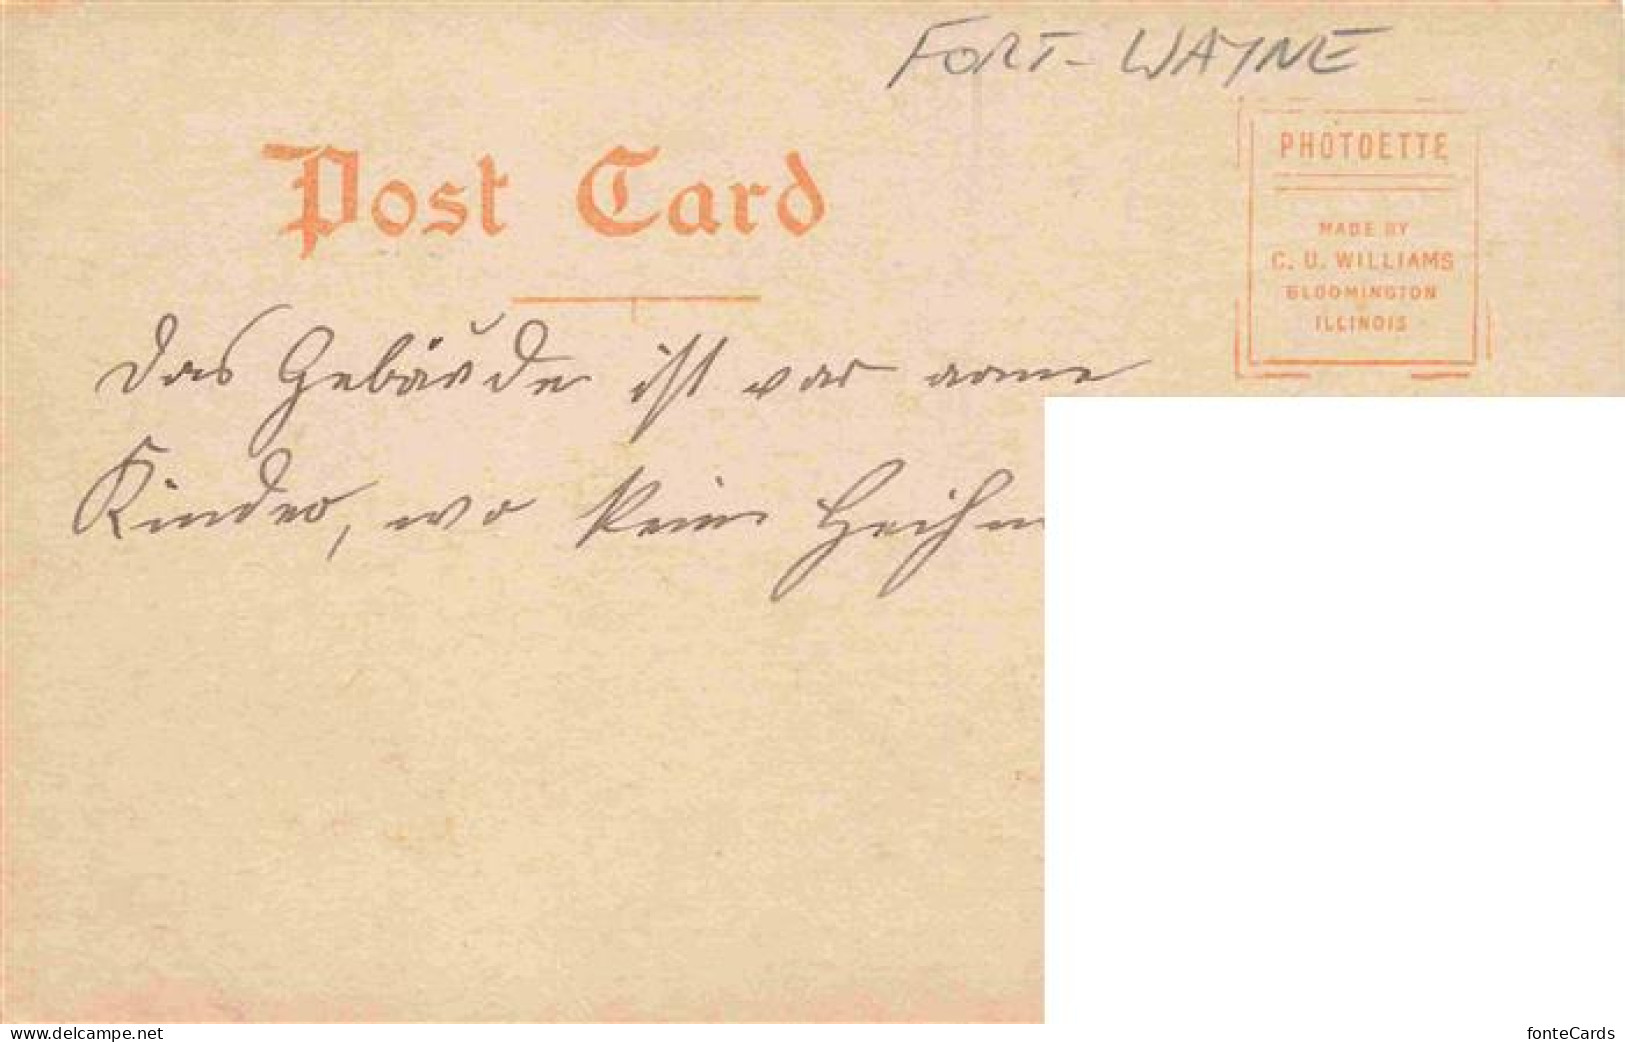 FORT-WAYNE
Post Card
PHOTOETTE
MADE BY
C. U. WILLIAMS
BLOOMINGTON
ILLINOIS
Das Gebäude ist vor arme
Kinder, wo kein
www.delcampe.net
fonteCards